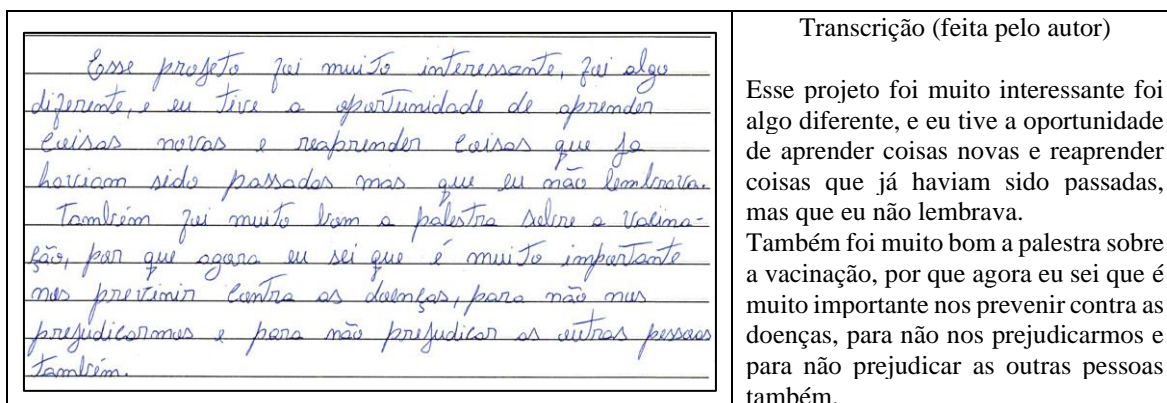 Esse projeto foi muito interessante, foi algo
diferente, e eu tive a oportunidade de aprender
coisas novas e reaprender coisas que ja
haviam sido passadas mas que eu não lembrava.
Também foi muito bom a palestra sobre a vacina-
ção, por que agora eu sei que é muito importante
nos previnir contra as doenças, para não nos
prejudicarmos e para não prejudicar as outras pessoas
também.
Transcrição (feita pelo autor)
Esse projeto foi muito interessante foi
algo diferente, e eu tive a oportunidade
de aprender coisas novas e reaprender
coisas que já haviam sido passadas,
mas que eu não lembrava.
Também foi muito bom a palestra sobre
a vacinação, por que agora eu sei que é
muito importante nos prevenir contra as
doenças, para não nos prejudicarmos e
para não prejudicar as outras pessoas
também.